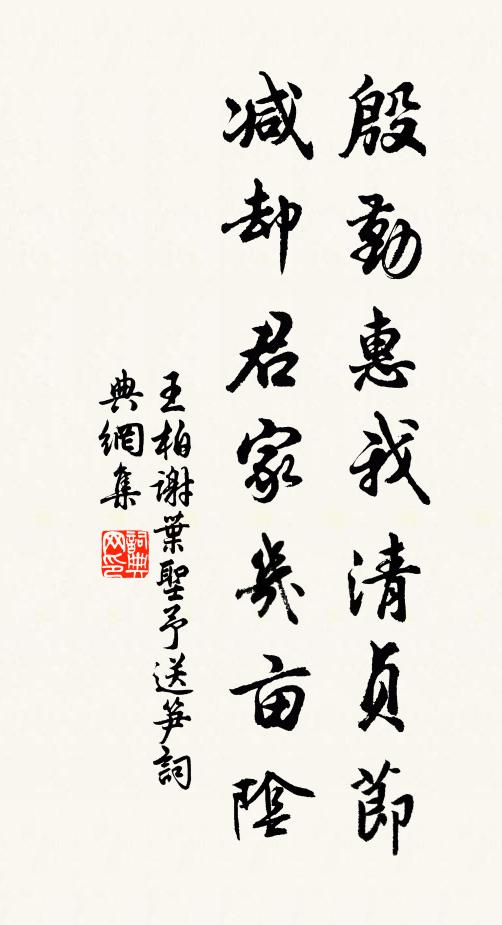 殷勤惠我清貞節
减却君家幾亩陰
王柏謝葉聖予送笋詞
典網集
詞典
网印